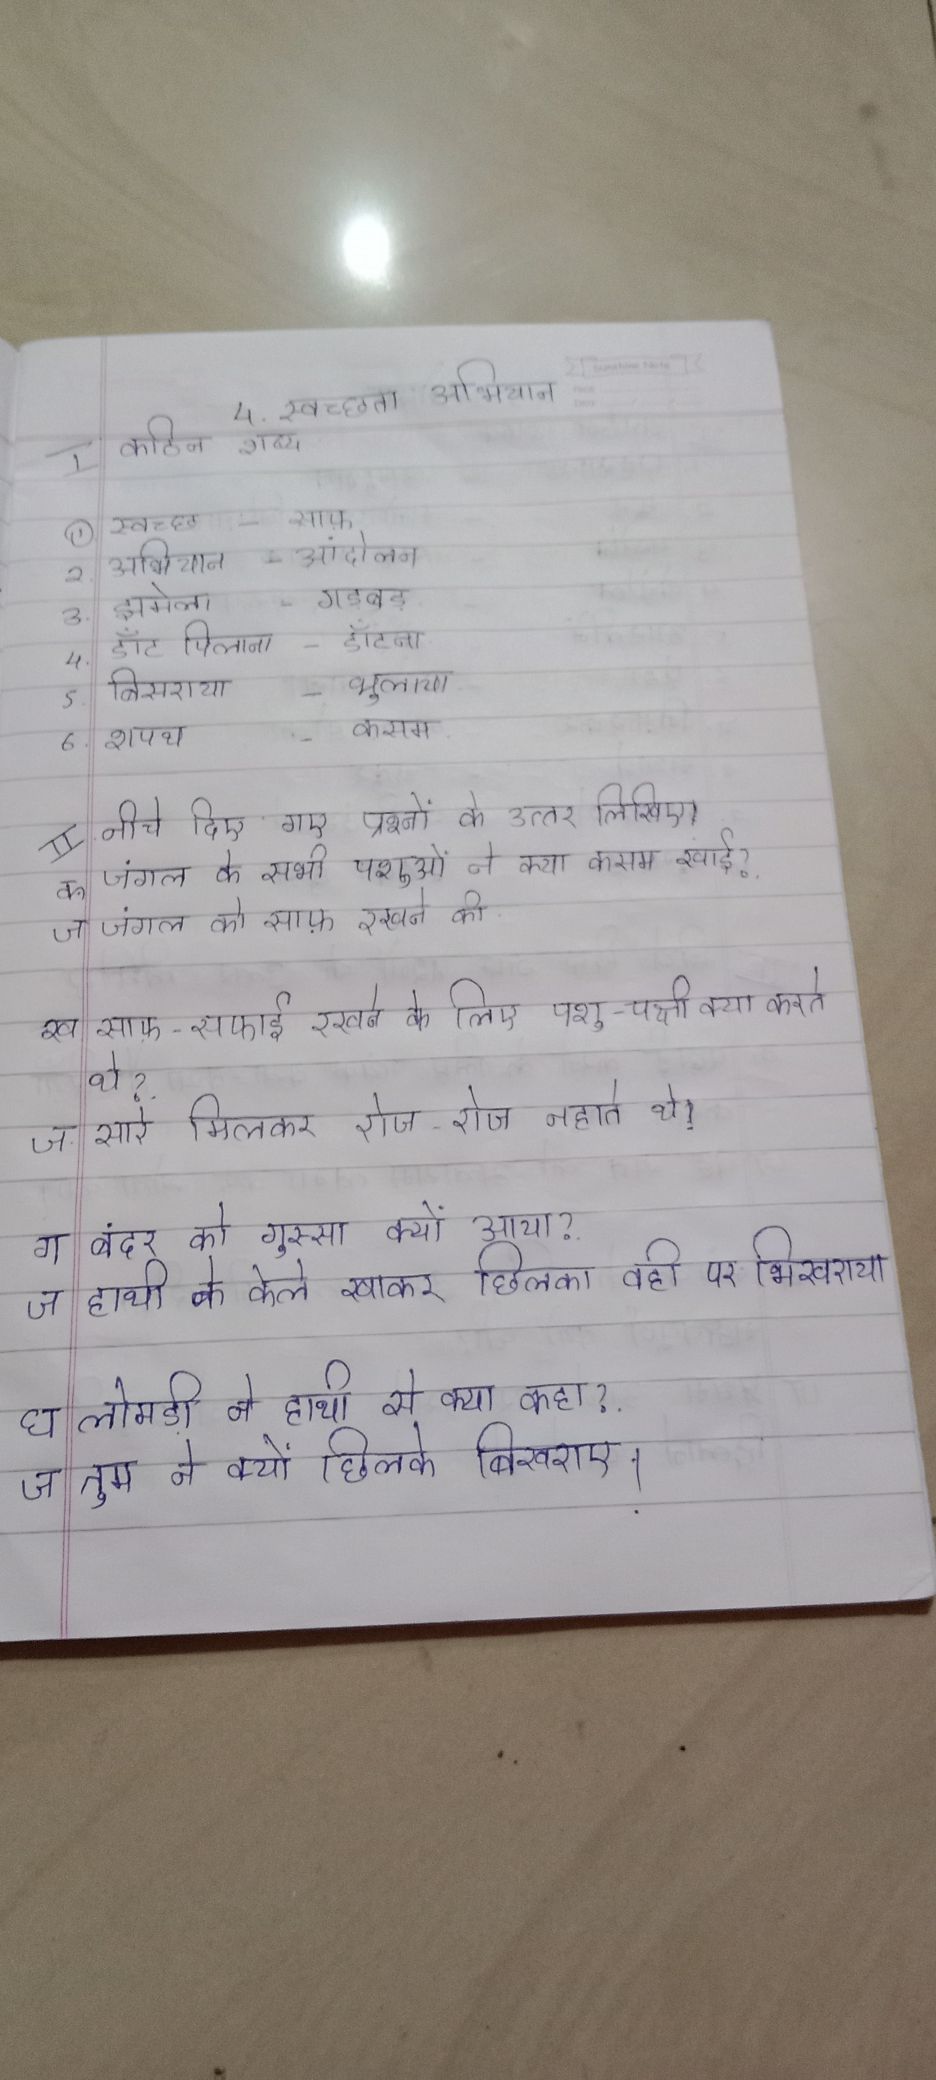 4. स्वच्छता अभियान
I कठिन शब्द
1 स्वच्छ - साफ़
2. अभियान - आंदोलन
3. झमेला - गड़बड़
4. डाँट पिलाना - डाँटना
5. बिसराया - भुलाया
6. शपथ - कसम
II नीचे दिए गए प्रश्नों के उत्तर लिखिए।
क जंगल के सभी पशुओं ने क्या कसम खाई?
ज जंगल को साफ़ रखने की
ख साफ़-सफाई रखने के लिए पशु-पक्षी क्या करते
थे?
ज सारे मिलकर रोज-रोज नहाते थे।
ग बंदर को गुस्सा क्यों आया?
ज हाथी के केले खाकर छिलका वही पर भिखराया
घ लोमड़ी ने हाथी से क्या कहा?
ज तुम ने क्यों छिलके बिखराए।